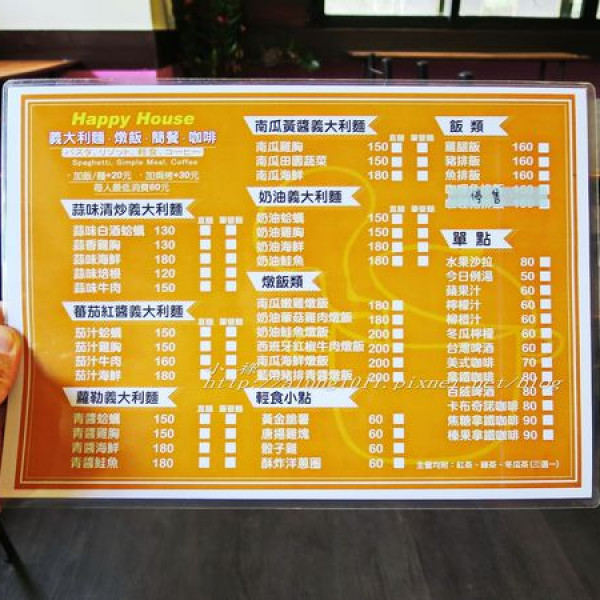 Happy House
義大利麵·燉飯·簡餐·咖啡
パスタ、リゾット、軽食、コーヒー
Spaghetti, Simple Meal, Coffee
·加飯/麵+20元 ·加焗烤+30元
每人最低消費60元
蒜味清炒義大利麵
蒜味白酒蛤蠣 130
蒜香雞胸 130
蒜味海鮮 180
蒜味培根 120
蒜味牛肉 150
蕃茄紅醬義大利麵
茄汁蛤蠣 150
茄汁雞胸 150
茄汁牛肉 160
茄汁海鮮 180
蘿勒義大利麵
青醬蛤蠣 150
青醬雞胸 150
青醬海鮮 180
青醬鮭魚 180
南瓜黃醬義大利麵
南瓜雞胸 150
南瓜田園蔬菜 150
南瓜海鮮 180
奶油義大利麵
奶油蛤蠣 150
奶油雞胸 150
奶油海鮮 180
奶油鮭魚 180
燉飯類
南瓜嫩雞燉飯 180
奶油蘑菇雞肉燉飯 180
奶油鮭魚燉飯 200
西班牙紅椒牛肉燉飯 200
藍帶豬排青醬燉飯 200
輕食小點
黃金脆薯 60
唐揚雞塊 60
骰子雞 60
酥炸洋蔥圈 60
飯類
雞腿飯 160
豬排飯 160
魚排飯 160
停售
單點
水果沙拉 80
今日例湯 50
蘋果汁 60
檸檬汁 60
柳橙汁 60
冬瓜檸檬 60
台灣啤酒 60
美式咖啡 70
拿鐵咖啡 80
百威啤酒 80
卡布奇諾咖啡 80
焦糖拿鐵咖啡 90
榛果拿鐵咖啡 90
主餐均附：紅茶、綠茶、冬瓜茶(三選一)